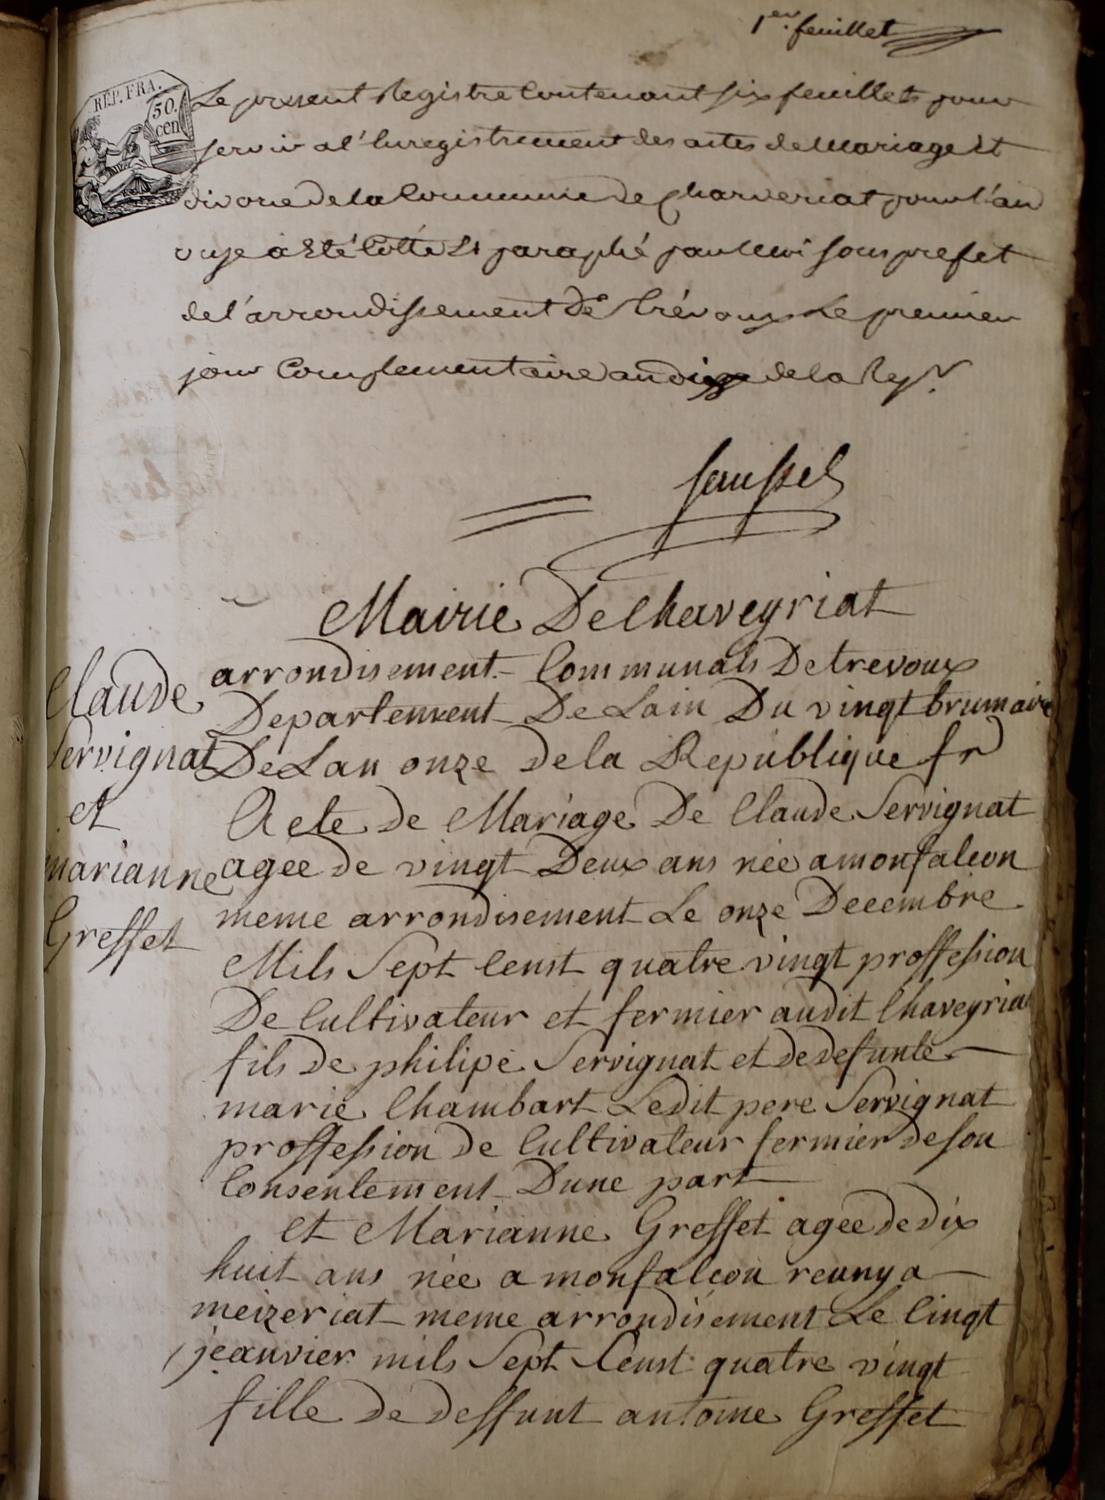 1er. feuillet
REP. FRA.
50.
cen
Le present Registre Contenant six feuillets pour
servir a l'Enregistrement des actes de Mariage Et
divorce de la Commune de Chaveriat pour l'an
onze à Eté Cotté Et paraphé par le Sous prefet
de l'arrondissement De Trévoux Le premier
jour Complementaire an dix de la Rep.
Mairie De Chaveyriat
Claude
Servignat
et
marianne
Greffet
arrondisement Communals De trevoux
Departement De Lain Du vingt brumaire
De Lan onze de la Republique fr
Acte de Mariage De Claude Servignat
agee de vingt Deux ans née a monfalcon
meme arrondisement Le onze Decembre
Mils Sept Censt quatre vingt proffession
De Cultivateur et fermier audit Chaveyriat
fils de philipe Servignat et de defunte
marie Chambart Ledit pere Servignat
proffession de Cultivateur fermier de son
Consentement Dune part
et Marianne Greffet agee de dix
huit ans née a monfalcon reuny a
meizeriat meme arrondisement Le Cinqt
jeanvier mils Sept Censt quatre vingt
fille de deffunt antoine Greffet